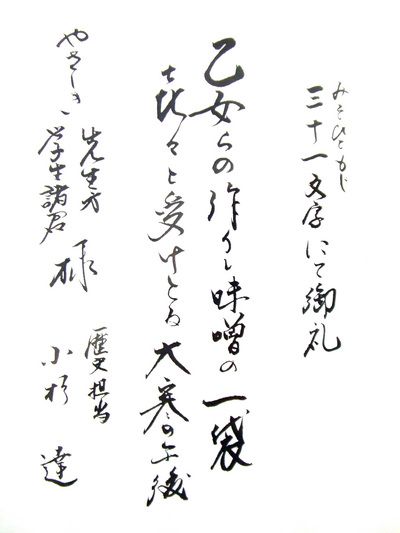 みそひともじ
三十一文字にて御礼
乙女らの作りし味噌の一袋
喜々と受けとる大寒の午後
やさしき
先生方
学生諸君
様
歴史担当
小杉 達